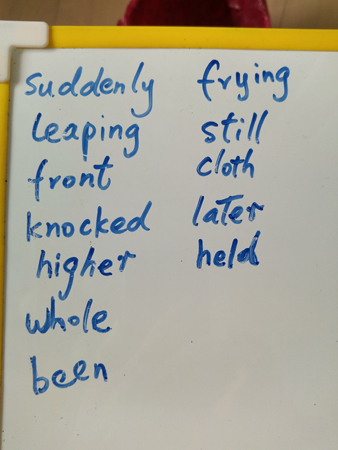 suddenly
leaping
front
knocked
higher
whole
been
frying
still
cloth
later
held